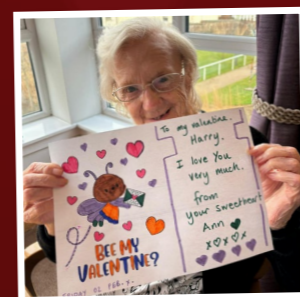 To my valentine.
Harry.
I love You
very much.
from
your sweetheart
Ann
xoxox
BEE MY
VALENTINE?
FRIDAY